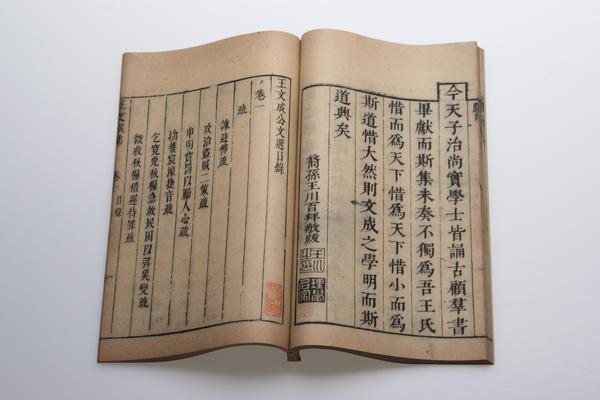 今天子治尚實學士皆誦古顧羣書
畢獻而斯集未奏不獨為吾王氏
惜而為天下惜為天下惜小而為
斯道惜大然則文成之學明而斯
道興矣
裔孫王川百拜敬跋
王文成公文選目錄
卷一
疏
諫迎佛疏
攻治盜賊二策疏
申明賞罰以厲人心疏
擒獲宸濠捷音疏
乞寬免稅糧急救民困以弭災變疏
徵收秋糧稽遲待罪疏